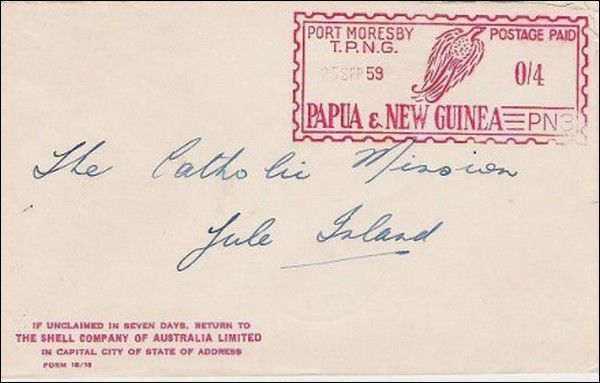 PORT MORESBY POSTAGE PAID
T.P.N.G.
SEP 59 0/4
PAPUA & NEW GUINEA PN3
The Catholic Mission
Yule Island
IF UNCLAIMED IN SEVEN DAYS, RETURN TO
THE SHELL COMPANY OF AUSTRALIA LIMITED
IN CAPITAL CITY OF STATE OF ADDRESS
FORM 16/16